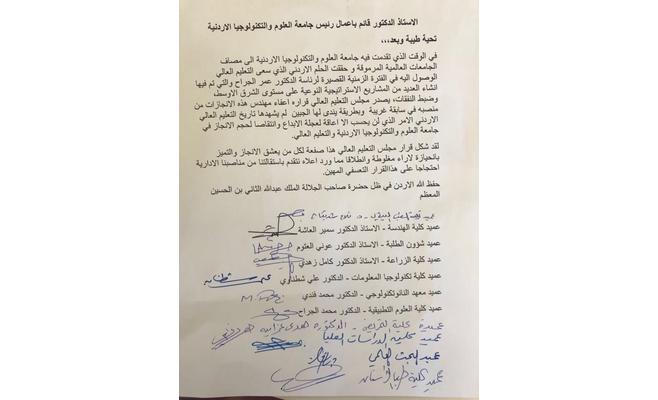 الاستاذ الدكتور قائم باعمال رئيس جامعة العلوم والتكنولوجيا الاردنية
تحية طيبة وبعد،،،
في الوقت الذي تقدمت فيه جامعة العلوم والتكنولوجيا الاردنية الى مصاف
الجامعات العالمية المرموقة و حققت الحلم الاردني الذي سعى التعليم العالي
الوصول اليه في الفترة الزمنية القصيرة لرئاسة الدكتور عمر الجراح والتي تم فيها
انشاء العديد من المشاريع الاستراتيجية النوعية على مستوى الشرق الاوسط،
وضبط النفقات، يصدر مجلس التعليم العالي قراره اعفاء مهندس هذه الانجازات من
منصبه في سابقة غريبة وبطريقة يندى لها الجبين لم يشهدها تاريخ التعليم العالي
الاردني الامر الذي لن يحسب الا اعاقة لعجلة الابداع وانتقاصا لحجم الانجاز في
جامعة العلوم والتكنولوجيا الاردنية والتعليم العالي.
لقد شكل قرار مجلس التعليم العالي هذا صفعة لكل من يعشق الانجاز والتميز
بانحيازة لاراء مغلوطة وانطلاقا مما ورد اعلاه نتقدم باستقالتنا من مناصبنا الادارية
احتجاجا على هذاالقرار التعسفي المهين.
حفظ الله الاردن في ظل حضرة صاحب الجلالة الملك عبدالله الثاني بن الحسين
المعظم
عميد كلية الهندسة - الاستاذ الدكتور سمير العاشة
عميد شؤون الطلبة - الاستاذ الدكتور عوني العتوم
عميد كلية الزراعة - الاستاذ الدكتور كامل زهدي
عميد كلية تكنولوجيا المعلومات - الدكتور علي شطناوي
عميد معهد النانوتكنولوجي - الدكتور محمد فندي
عميد كلية العلوم التطبيقية - الدكتور محمد الجراح
عميدة كلية التمريض - الدكتورة هدى غرايبه
عميد كلية الدراسات العليا
عميد البحث العلمي
عميد كلية طب الاسنان